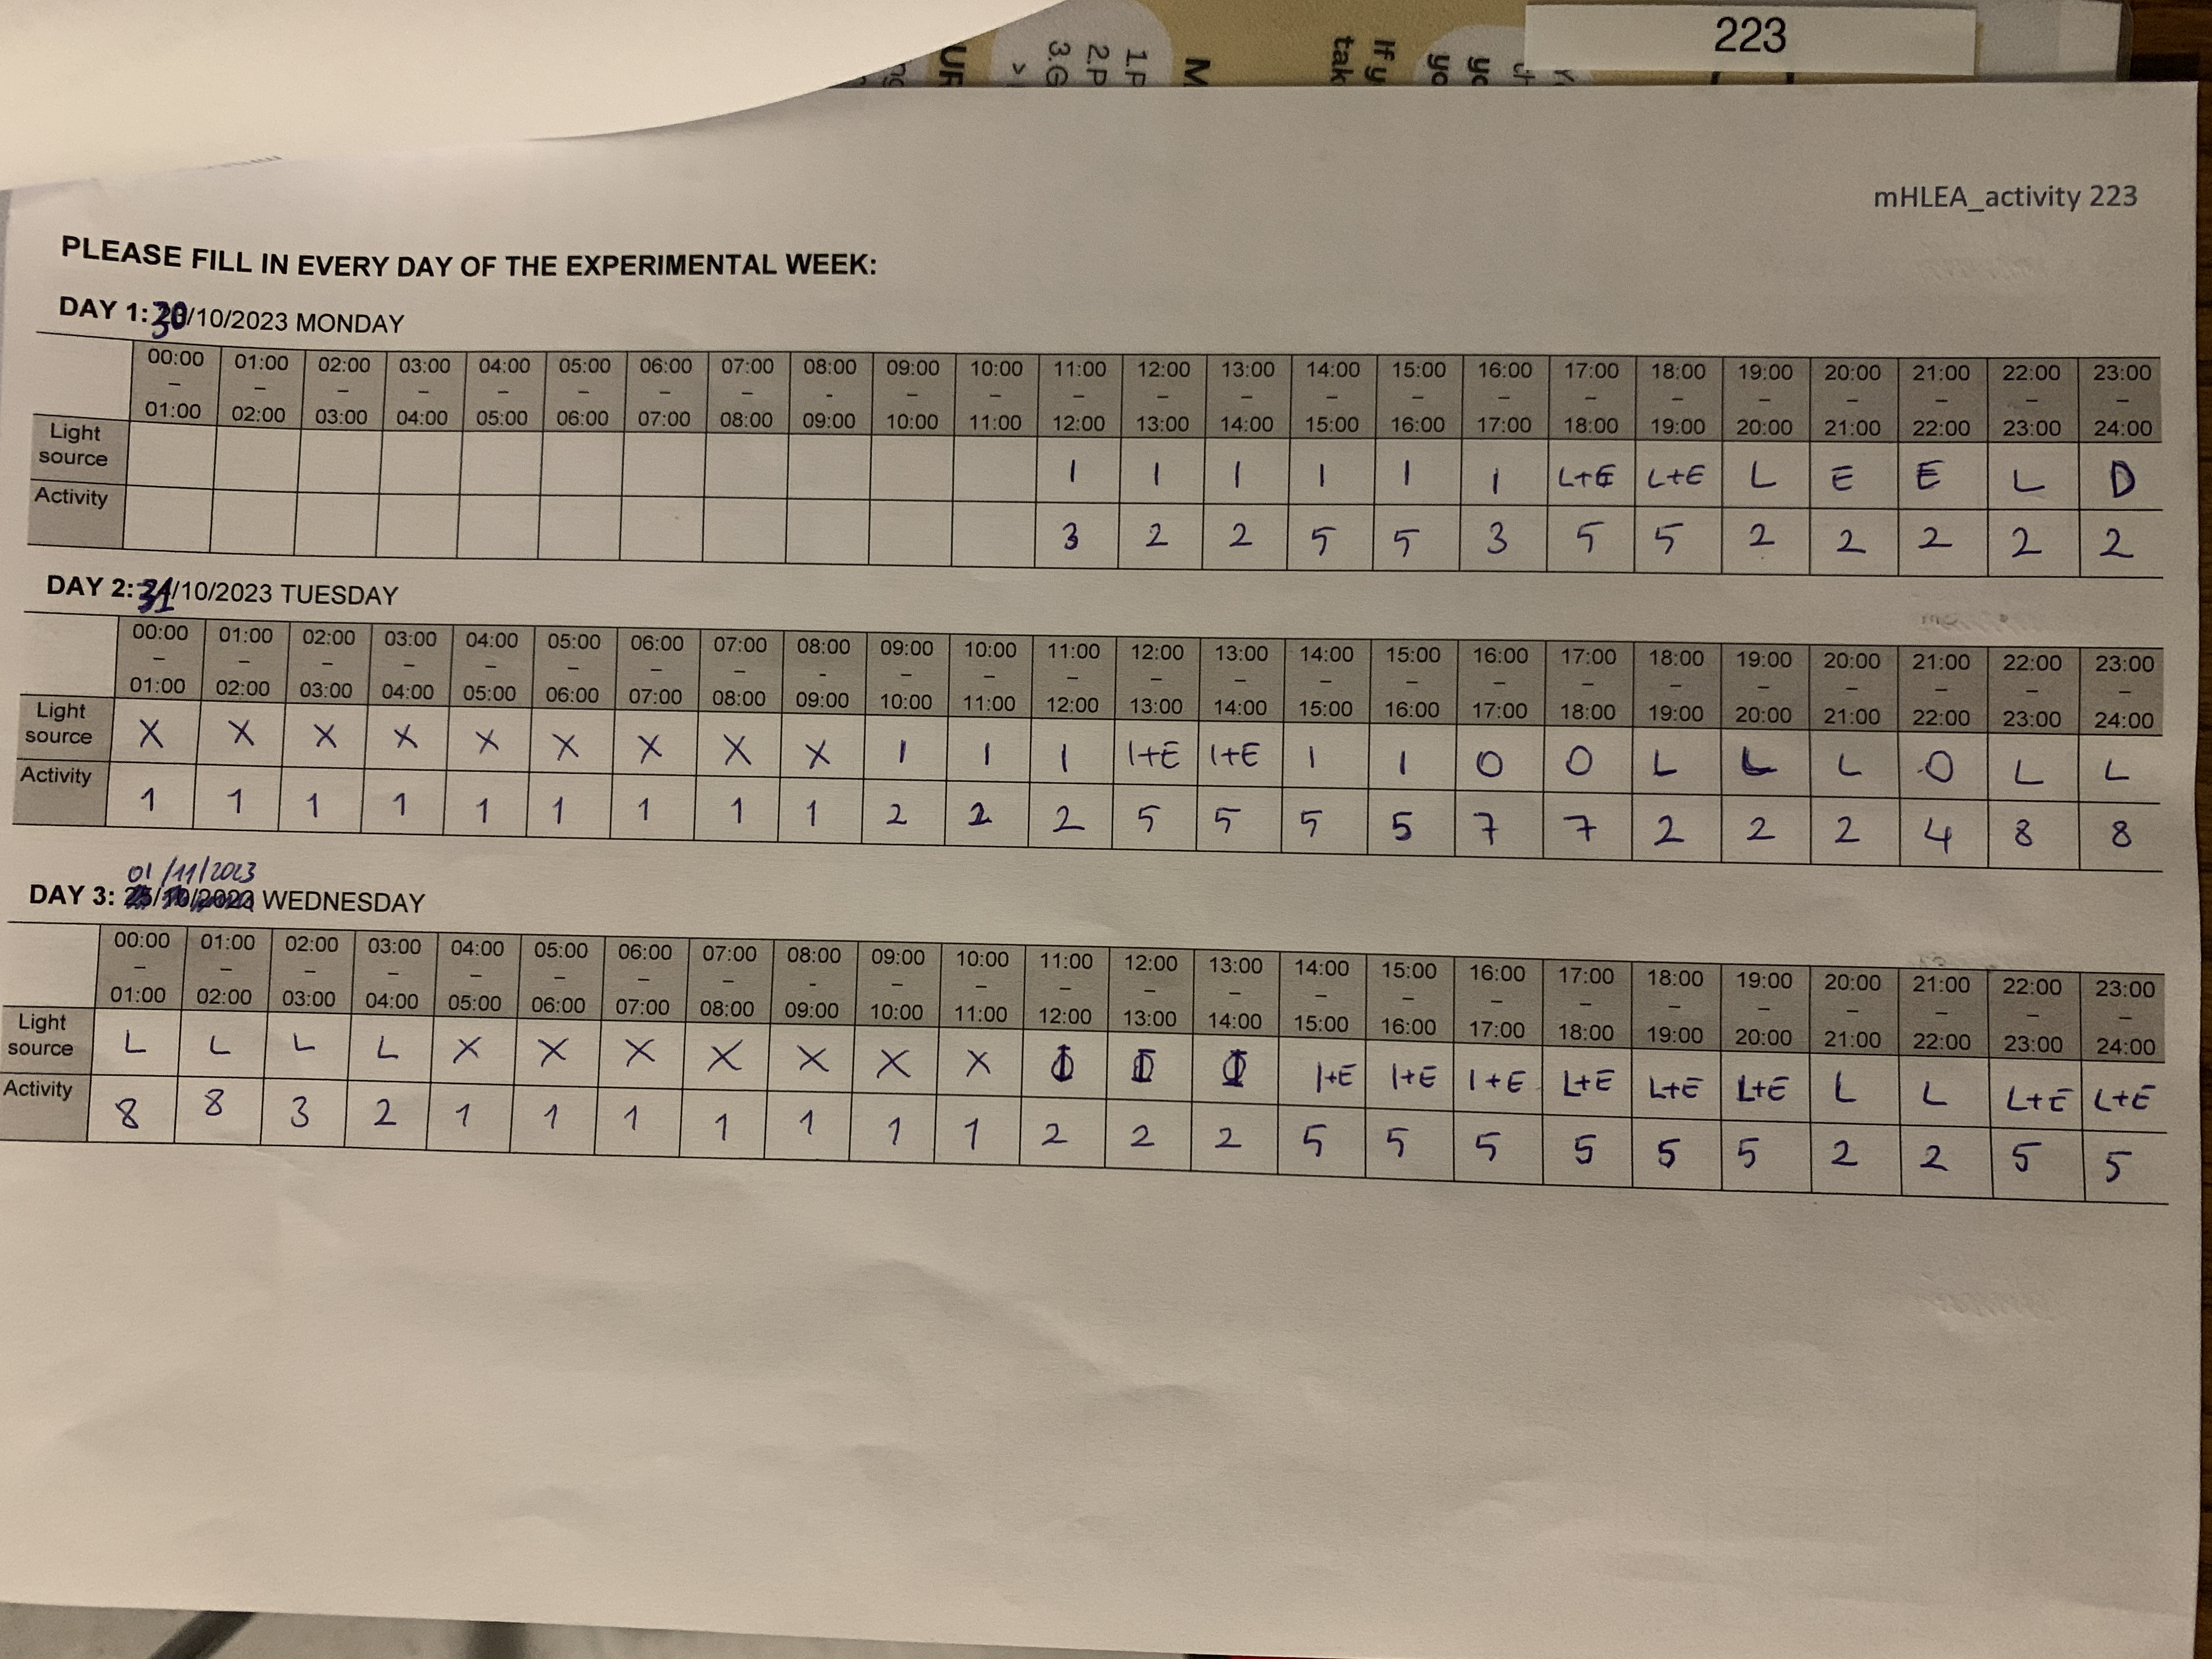 mHLEA_activity 223
223
PLEASE FILL IN EVERY DAY OF THE EXPERIMENTAL WEEK:
DAY 1: 30/10/2023 MONDAY
00:00 – 01:00 01:00 – 02:00 02:00 – 03:00 03:00 – 04:00 04:00 – 05:00 05:00 – 06:00 06:00 – 07:00 07:00 – 08:00 08:00 - 09:00 09:00 – 10:00 10:00 – 11:00 11:00 – 12:00 12:00 – 13:00 13:00 – 14:00 14:00 – 15:00 15:00 – 16:00 16:00 – 17:00 17:00 – 18:00 18:00 – 19:00 19:00 – 20:00 20:00 – 21:00 21:00 – 22:00 22:00 – 23:00 23:00 – 24:00
Light source I I I I I I L+E L+E L E E L D
Activity 3 2 2 5 5 3 5 5 2 2 2 2 2
DAY 2: 31/10/2023 TUESDAY
00:00 – 01:00 01:00 – 02:00 02:00 – 03:00 03:00 – 04:00 04:00 – 05:00 05:00 – 06:00 06:00 – 07:00 07:00 – 08:00 08:00 - 09:00 09:00 – 10:00 10:00 – 11:00 11:00 – 12:00 12:00 – 13:00 13:00 – 14:00 14:00 – 15:00 15:00 – 16:00 16:00 – 17:00 17:00 – 18:00 18:00 – 19:00 19:00 – 20:00 20:00 – 21:00 21:00 – 22:00 22:00 – 23:00 23:00 – 24:00
Light source X X X X X X X X X I I I I+E I+E I I O O L L L O L L
Activity 1 1 1 1 1 1 1 1 1 2 2 2 5 5 5 5 7 7 2 2 2 4 8 8
01/11/2023
DAY 3: WEDNESDAY
00:00 – 01:00 01:00 – 02:00 02:00 – 03:00 03:00 – 04:00 04:00 – 05:00 05:00 – 06:00 06:00 – 07:00 07:00 – 08:00 08:00 - 09:00 09:00 – 10:00 10:00 – 11:00 11:00 – 12:00 12:00 – 13:00 13:00 – 14:00 14:00 – 15:00 15:00 – 16:00 16:00 – 17:00 17:00 – 18:00 18:00 – 19:00 19:00 – 20:00 20:00 – 21:00 21:00 – 22:00 22:00 – 23:00 23:00 – 24:00
Light source L L L L X X X X X X X I+E I+E I+E L+E L+E L+E L L L+E L+E
Activity 8 8 3 2 1 1 1 1 1 1 1 2 2 2 5 5 5 5 5 5 2 2 5 5